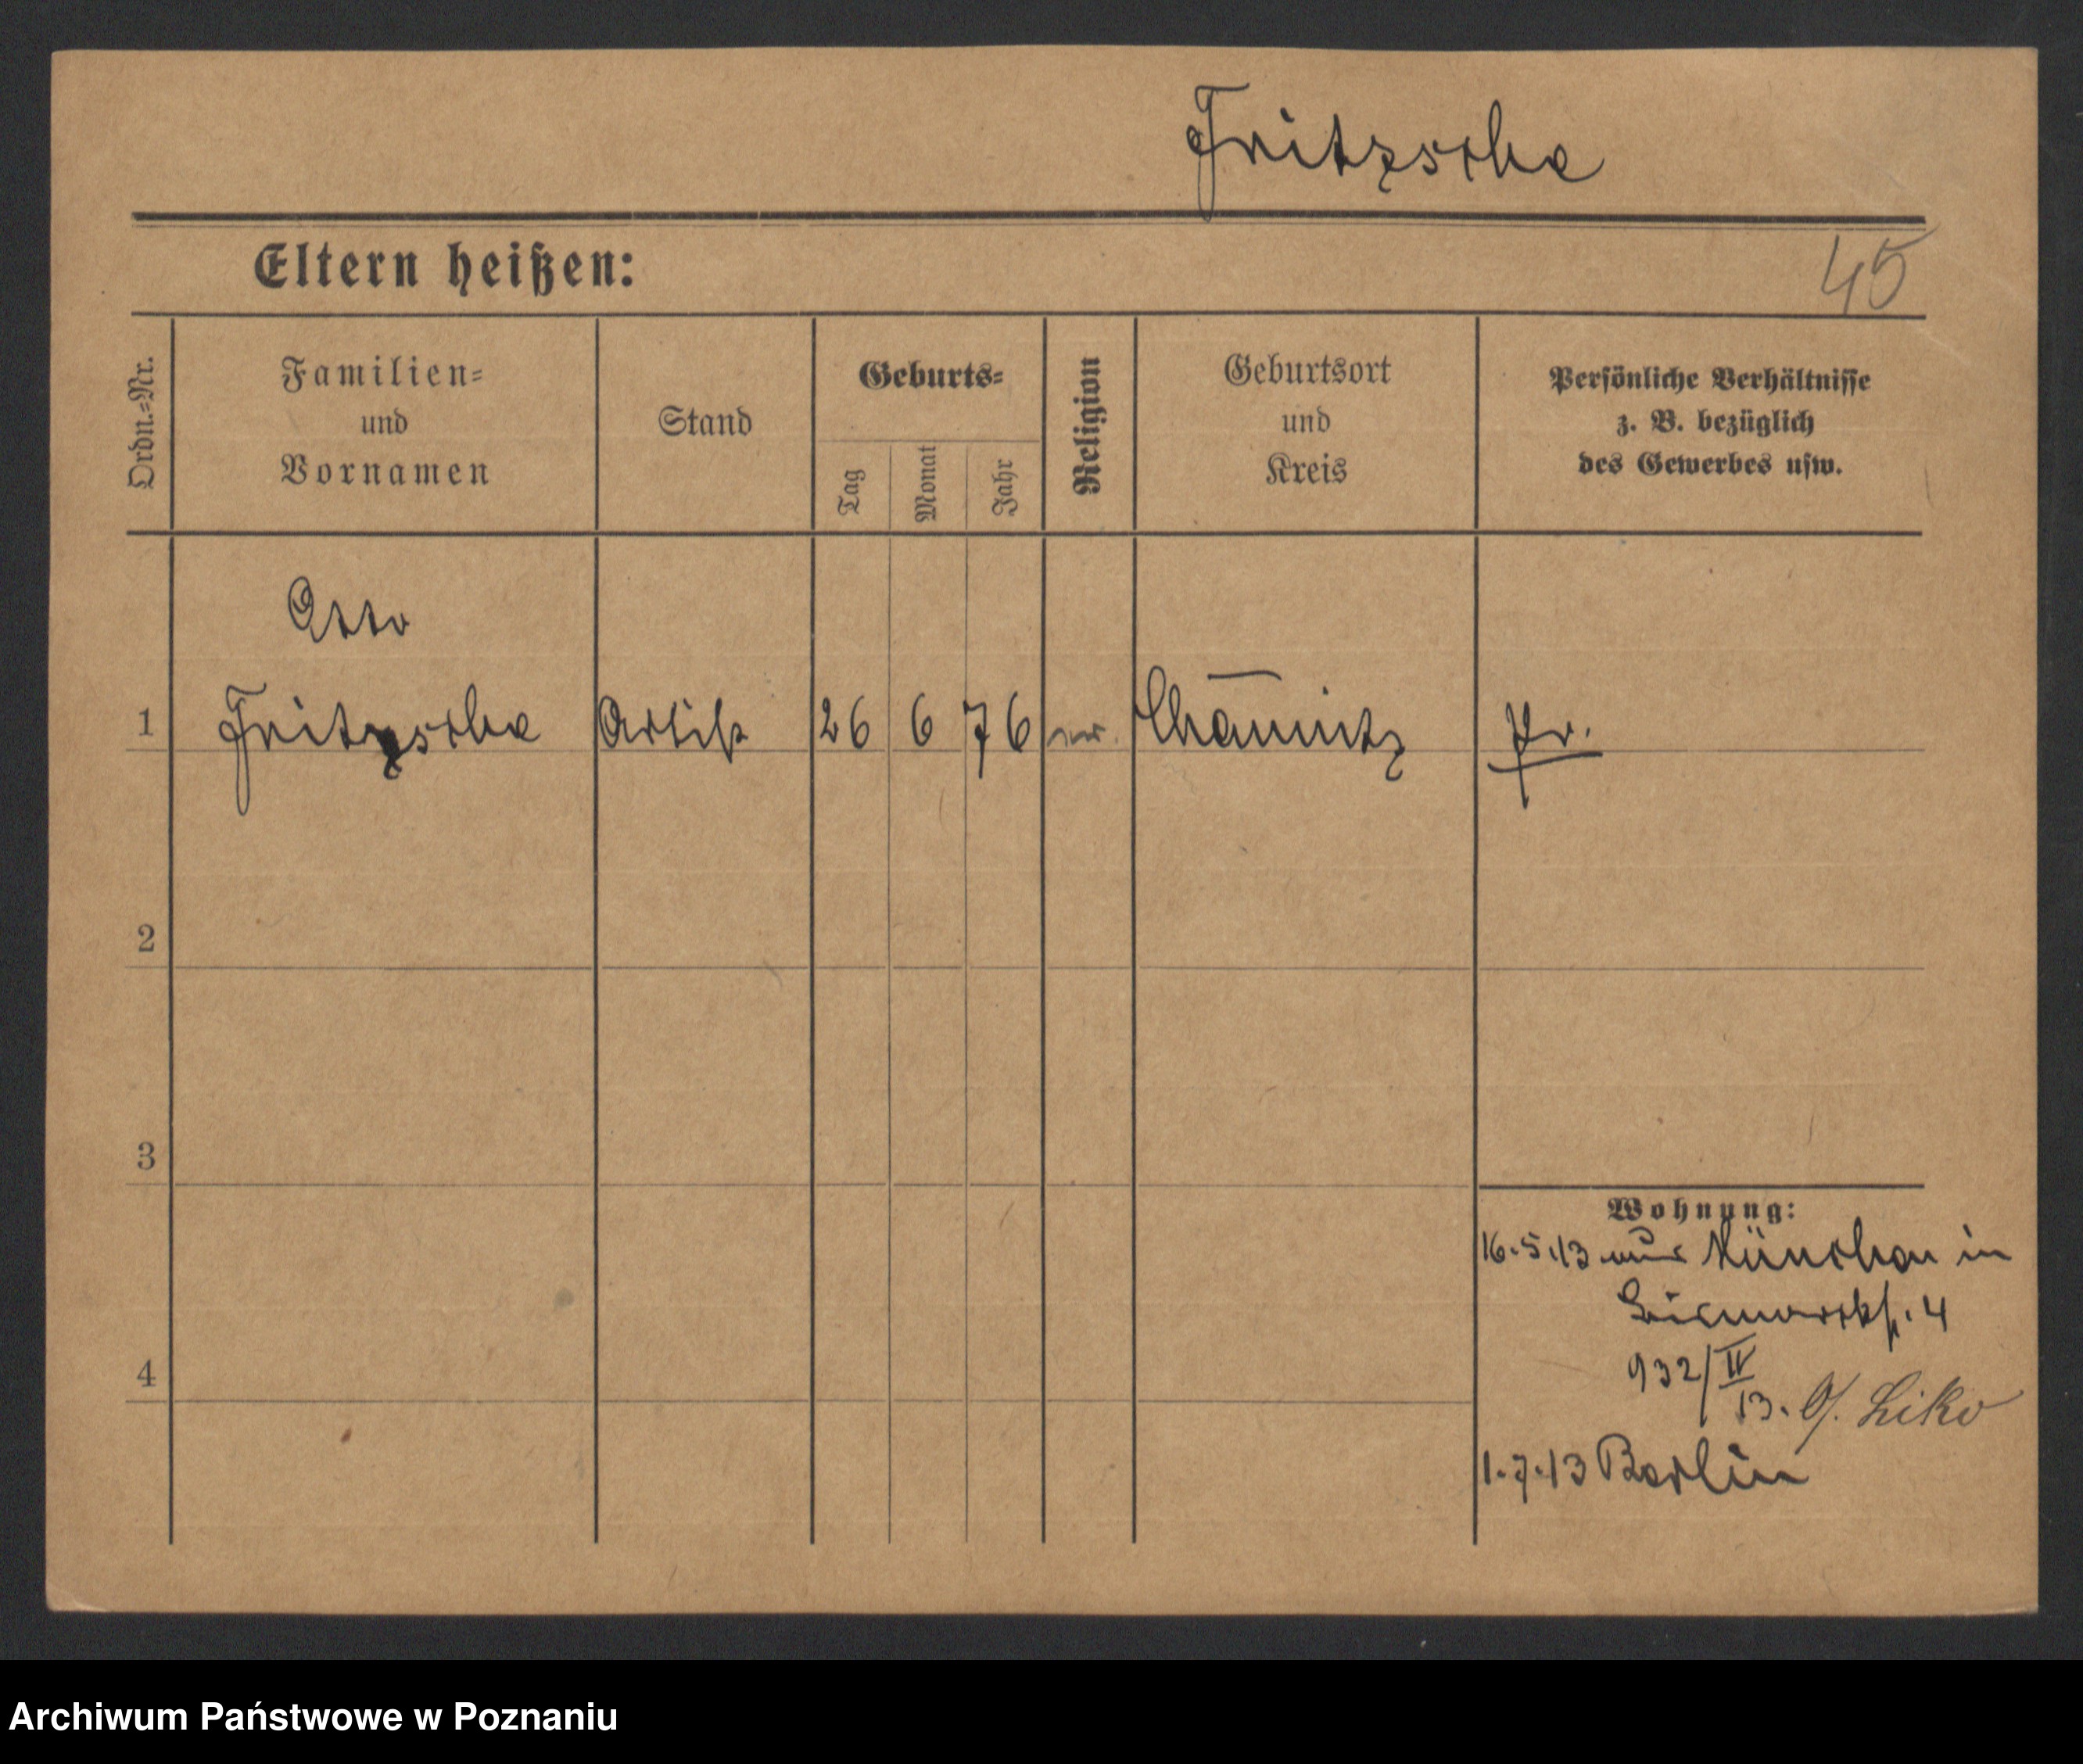 Fritzsche
Eltern heißen:
45
Ordn.=Nr.
Familien=
und
Vornamen
Stand
Geburts=
Tag
Monat
Jahr
Religion
Geburtsort
und
Kreis
Persönliche Verhältnisse
z. B. bezüglich
des Gewerbes usw.
Otto
1 Fritzsche Artist 26 6 76 Chem̄nitz Pr.
2
3
4
Wohnung:
16.5.13 aus München in
Bismarckst. 4
932/IV
13.
1.7.13 Berlin
Archiwum Państwowe w Poznaniu